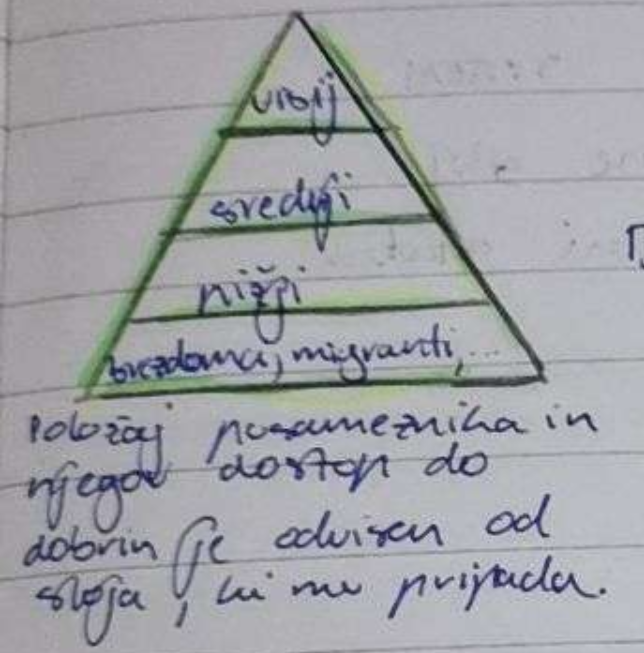 višji
srednji
nižji
brezdomci, migranti, ...
Položaj posameznika in
njegov dostop do
dobrin je odvisen od
sloja, ki mu pripada.